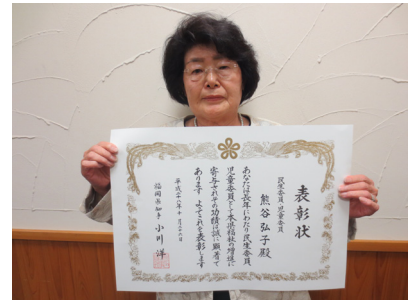 表彰状
民生委員・児童委員
熊谷弘子殿
あなたは長年にわたり民生委員
児童委員として本県福祉の増進に
寄与されその功績は誠に顕著で
あります よってこれを表彰します
平成二十八年十月二十六日
福岡県知事 小川洋